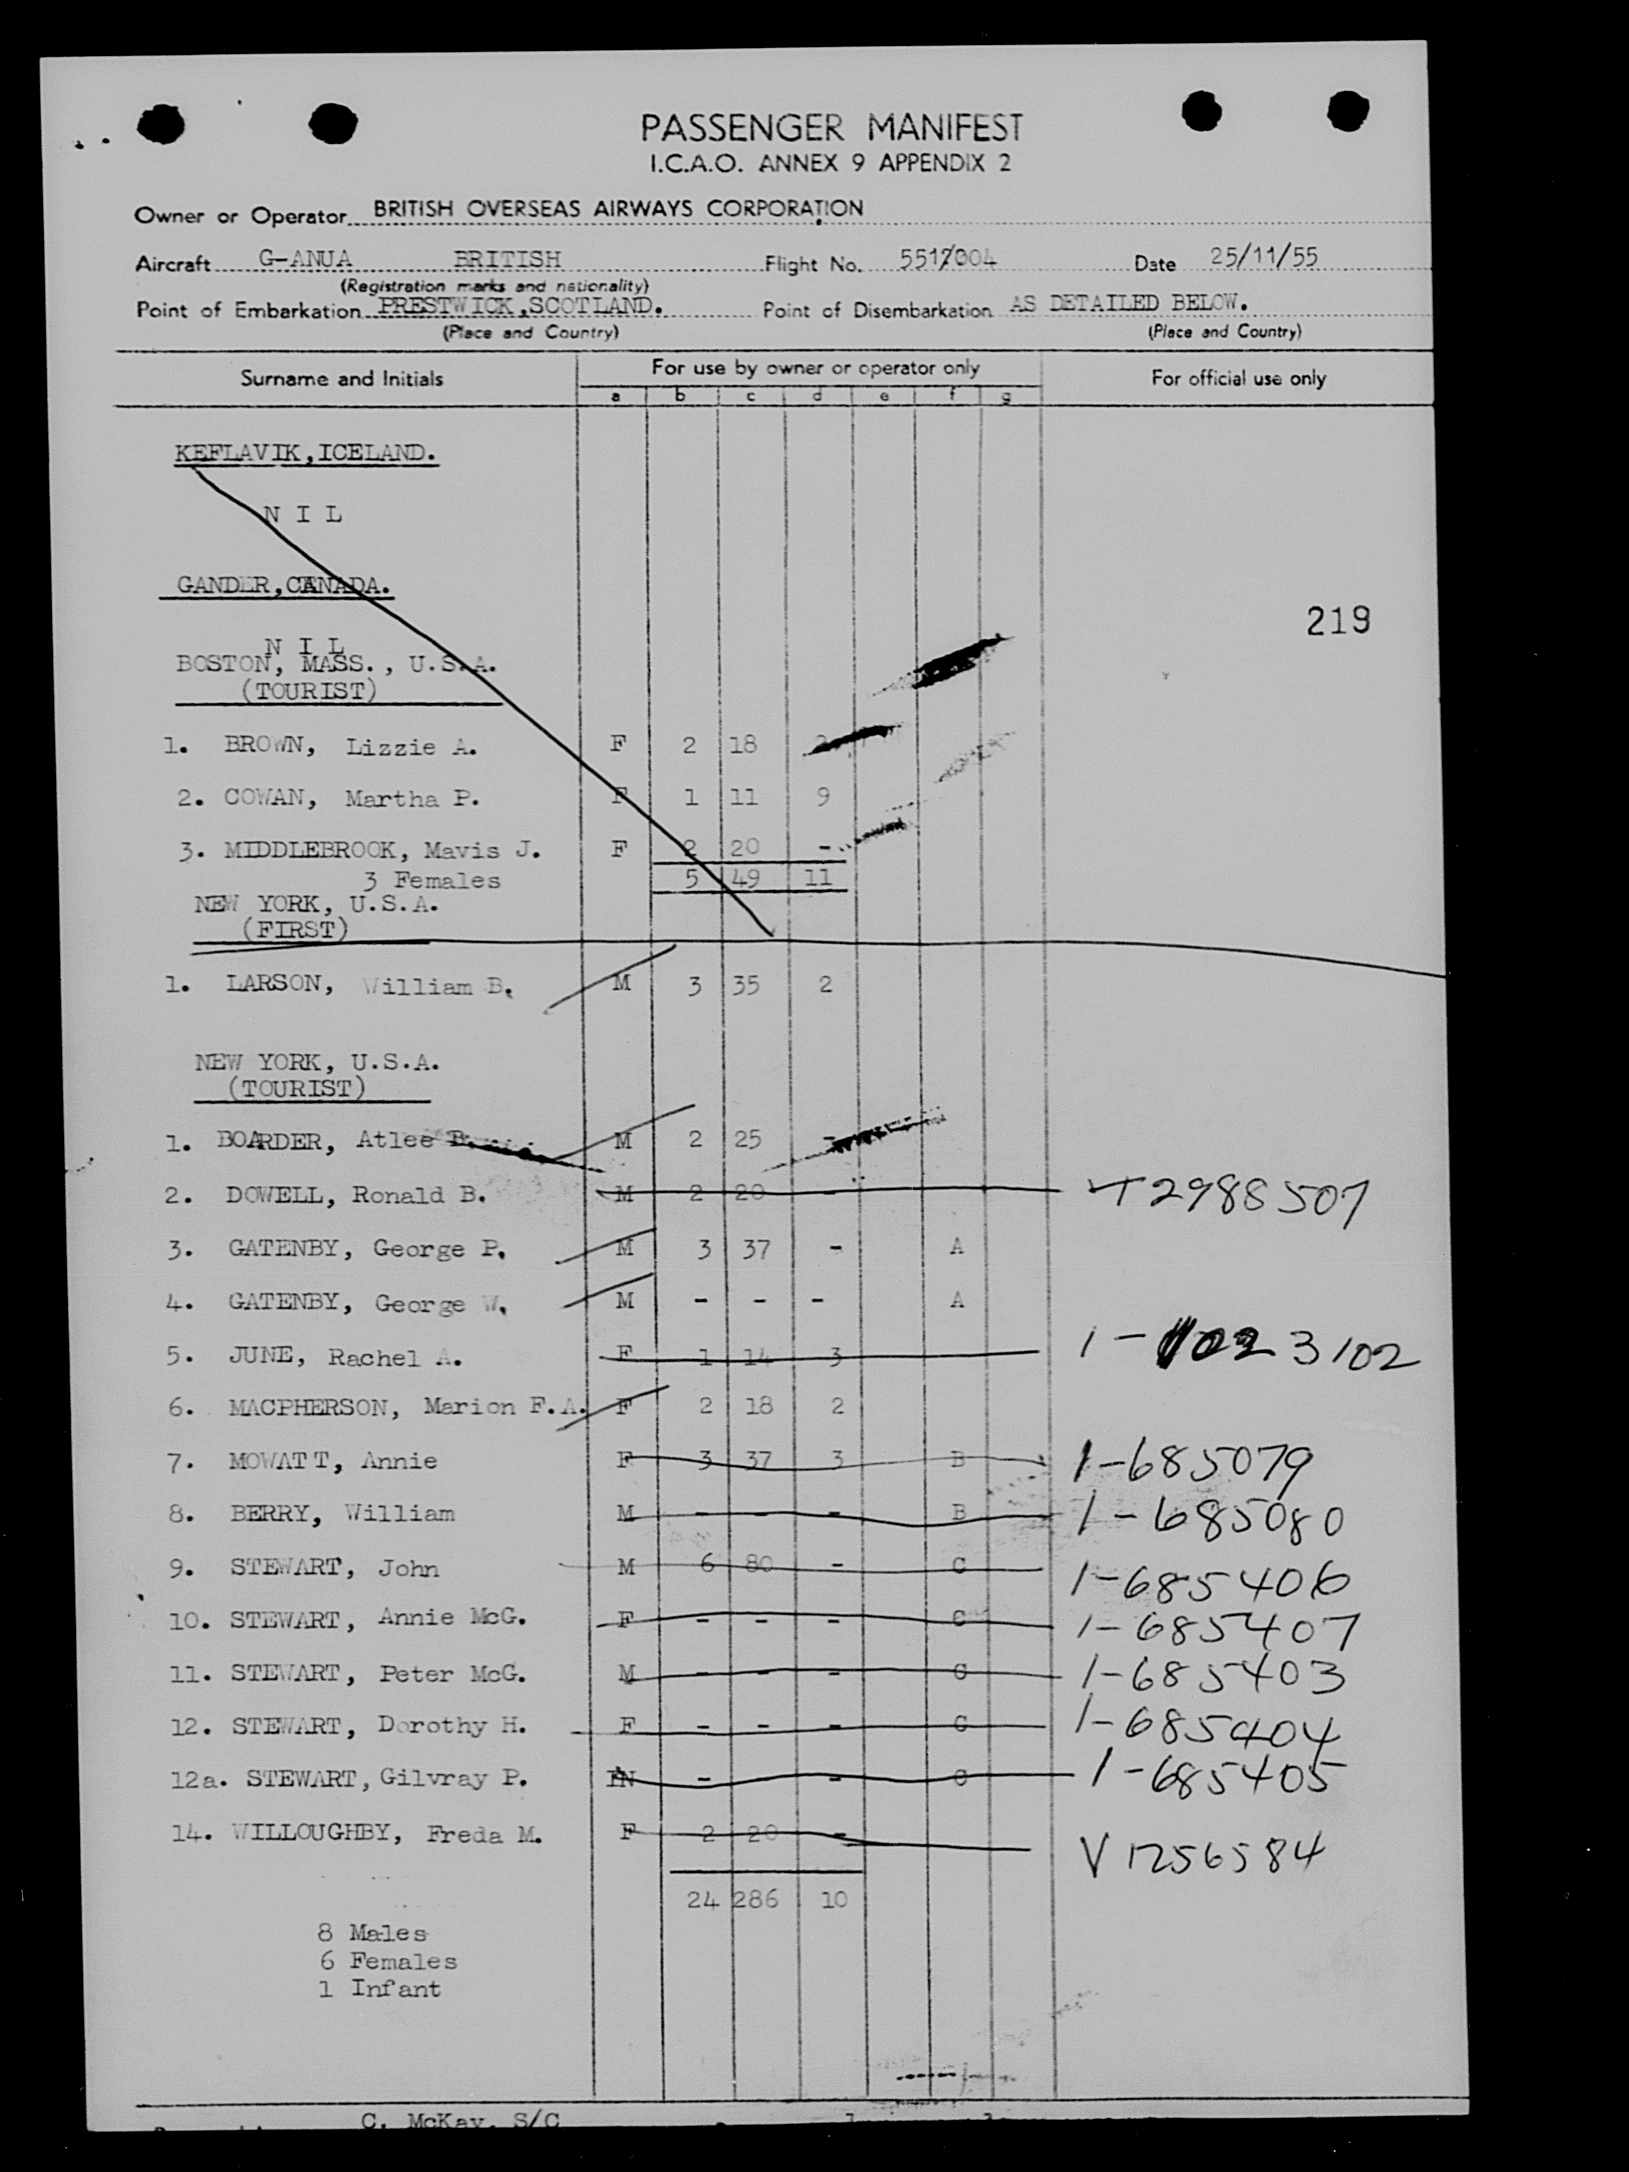 PASSENGER MANIFEST
I.C.A.O. ANNEX 9 APPENDIX 2
Owner or Operator BRITISH OVERSEAS AIRWAYS CORPORATION
Aircraft G-ANUA BRITISH Flight No. 5517/004 Date 25/11/55
(Registration marks and nationality)
Point of Embarkation PRESTWICK,SCOTLAND. Point of Disembarkation AS DETAILED BELOW.
(Place and Country) (Place and Country)
Surname and Initials For use by owner or operator only For official use only
a b c d e f g
KEFLAVIK,ICELAND.
N I L
GANDER,CANADA.
219
N I L
BOSTON, MASS., U.S.A.
(TOURIST)
1. BROWN, Lizzie A. F 2 18
2. COWAN, Martha P. F 1 11 9
3. MIDDLEBROOK, Mavis J. F 2 20 -
3 Females 5 49 11
NEW YORK, U.S.A.
(FIRST)
1. LARSON, William B. M 3 35 2
NEW YORK, U.S.A.
(TOURIST)
1. BOARDER, Atlee B. M 2 25 -
2. DOWELL, Ronald B. M 2 20 - T2988507
3. GATENBY, George P. M 3 37 - A
4. GATENBY, George W. M - - - A
5. JUNE, Rachel A. F 1 14 3 1-1023102
6. MACPHERSON, Marion F.A. F 2 18 2
7. MOWATT, Annie F 3 37 3 B 1-685079
8. BERRY, William M - - - B 1-685080
9. STEWART, John M 6 80 - C 1-685406
10. STEWART, Annie McG. F - - - C 1-685407
11. STEWART, Peter McG. M - - - C 1-685403
12. STEWART, Dorothy H. F - - - C 1-685404
12a. STEWART, Gilvray P. IN - - C 1-685405
14. WILLOUGHBY, Freda M. F 2 20 - V1256584
24 286 10
8 Males
6 Females
1 Infant
C. McKay, S/C